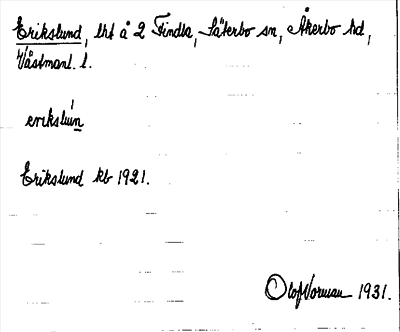 Erikslund, lht å 2 Findla, Säterbo sn, Åkerbo hd,
Västmanl. l.
erikslun
Erikslund kb 1921.
Olof Norman 1931.